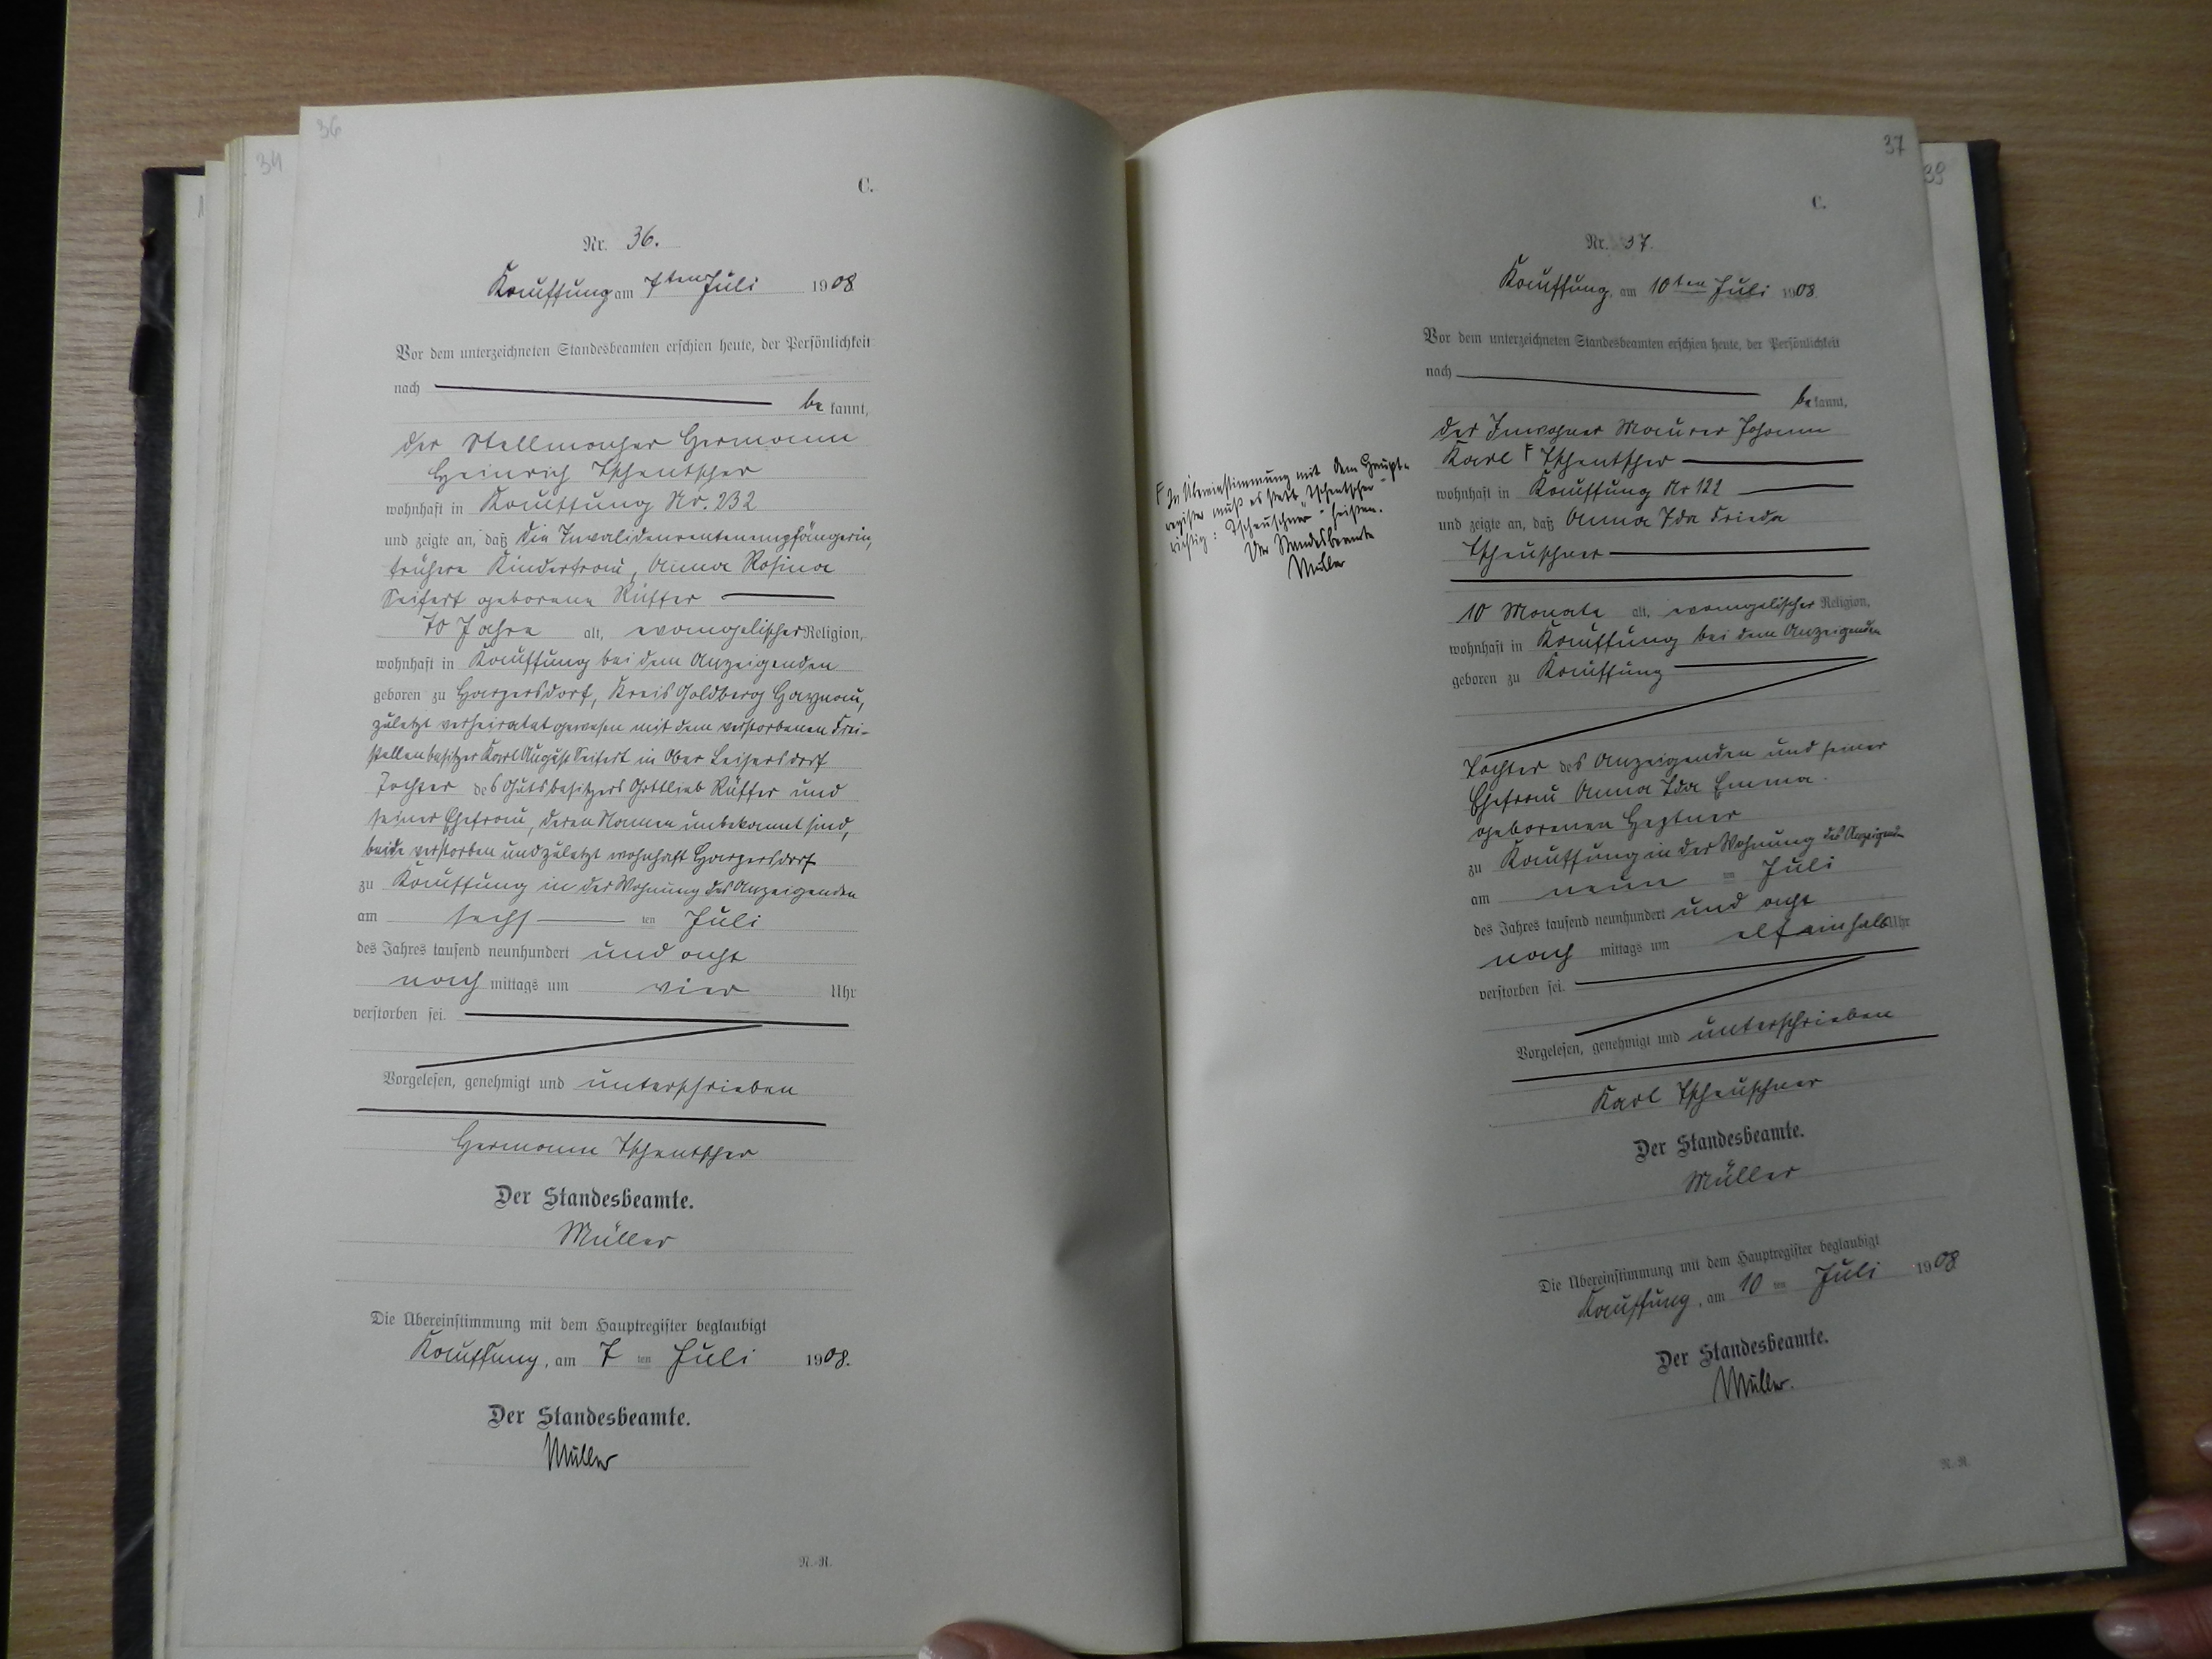 36
34
C.
Nr. 36.
Kauffung am 7ten Juli 1908
Vor dem unterzeichneten Standesbeamten erschien heute, der Persönlichkeit
nach
be kannt,
der Stellmacher Hermann
Heinrich Tschentscher
wohnhaft in Kauffung Nr. 232
und zeigte an, daß die Invalidenrentenempfängerin,
frühere Kinderfrau, Anna Rosina
Seifert geborene Rüffer
70 Jahre alt, evangelischer Religion,
wohnhaft in Kauffung bei dem Anzeigenden
geboren zu Harpersdorf, Kreis Goldberg Haynau,
zuletzt verheiratet gewesen mit dem verstorbenen Frei-
stellenbesitzer Karl August Seifert in Ober Leisersdorf
Tochter des Gutsbesitzers Gottlieb Rüffer und
seiner Ehefrau, deren Namen unbekannt sind,
beide verstorben und zuletzt wohnhaft Harpersdorf
zu Kauffung in der Wohnung des Anzeigenden
am sechs ten Juli
des Jahres tausend neunhundert und acht
nach mittags um vier Uhr
verstorben sei.
Vorgelesen, genehmigt und unterschrieben
Hermann Tschentscher
Der Standesbeamte.
Müller
Die Übereinstimmung mit dem Hauptregister beglaubigt
Kauffung, am 7 ten Juli 1908.
Der Standesbeamte.
Müller
N.-R.
37
39
C.
Nr. 37.
Kauffung, am 10ten Juli 1908
Vor dem unterzeichneten Standesbeamten erschien heute, der Persönlichkeit
nach
be kannt,
der Inwohner Maurer Johann
Karl F Tschentscher
wohnhaft in Kauffung Nr 122
und zeigte an, daß Anna Ida Frieda
Tscheuschner
10 Monate alt, evangelischer Religion,
wohnhaft in Kauffung bei dem Anzeigenden
geboren zu Kauffung
Tochter des Anzeigenden und seiner
Ehefrau Anna Ida Emma
geborenen
zu Kauffung in der Wohnung des Anzeigenden
am neun ten Juli
des Jahres tausend neunhundert und acht
nach mittags um elf einhalb Uhr
verstorben sei.
Vorgelesen, genehmigt und unterschrieben
Karl Tscheuschner
Der Standesbeamte.
Müller
Die Übereinstimmung mit dem Hauptregister beglaubigt
Kauffung, am 10 ten Juli 1908
Der Standesbeamte.
Müller.
N.-R.
F In Übereinstimmung mit dem Haupt-
register muß es statt "Tschentscher"
richtig: "Tscheuschner" heißen.
Der Standesbeamte
Müller